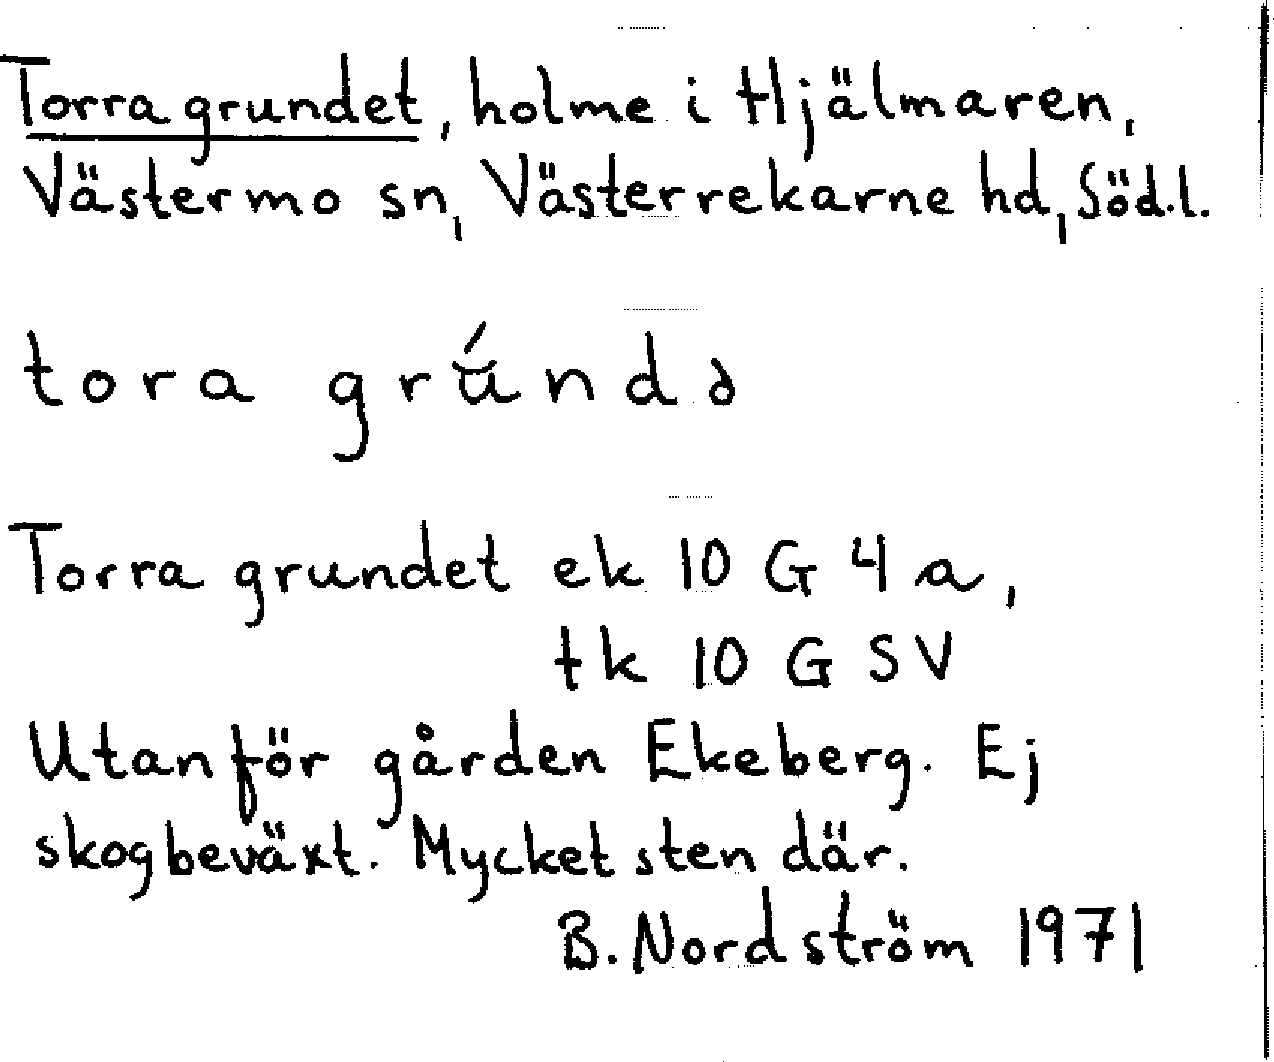 Torra grundet, holme i Hjälmaren,
Västermo sn, Västerrekarne hd, Söd.l.
tora grŭ́ndə
Torra grundet ek 10 G 4 a,
tk 10 G SV
Utanför gården Ekeberg. Ej
skogbeväxt. Mycket sten där.
B. Nordström 1971